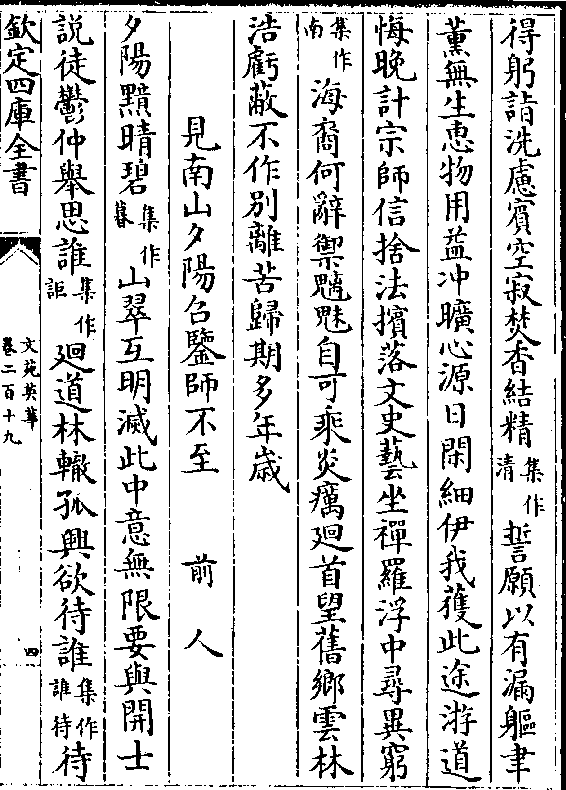 得躬詣洗慮賓空寂焚香結精集作清誓願以有漏軀聿
薰無生恵物用益冲曠心源日閑細伊我獲此途游道
悔晚計宗師信捨法擯落文史藝坐禪羅浮中尋異窮
集作南海裔何辭禦魑魅自可乘炎癘廻首望舊鄉雲林
浩虧蔽不作別離苦歸期多年歳
見南山夕陽召鑒師不至 前人
夕陽黯晴碧集作暮山翠互明滅此中意無限要與開士
説徒鬱仲舉思誰集作詎廻道林轍孤興欲待誰集作誰待待
欽定四庫全書
文苑英華
卷二百十九
四